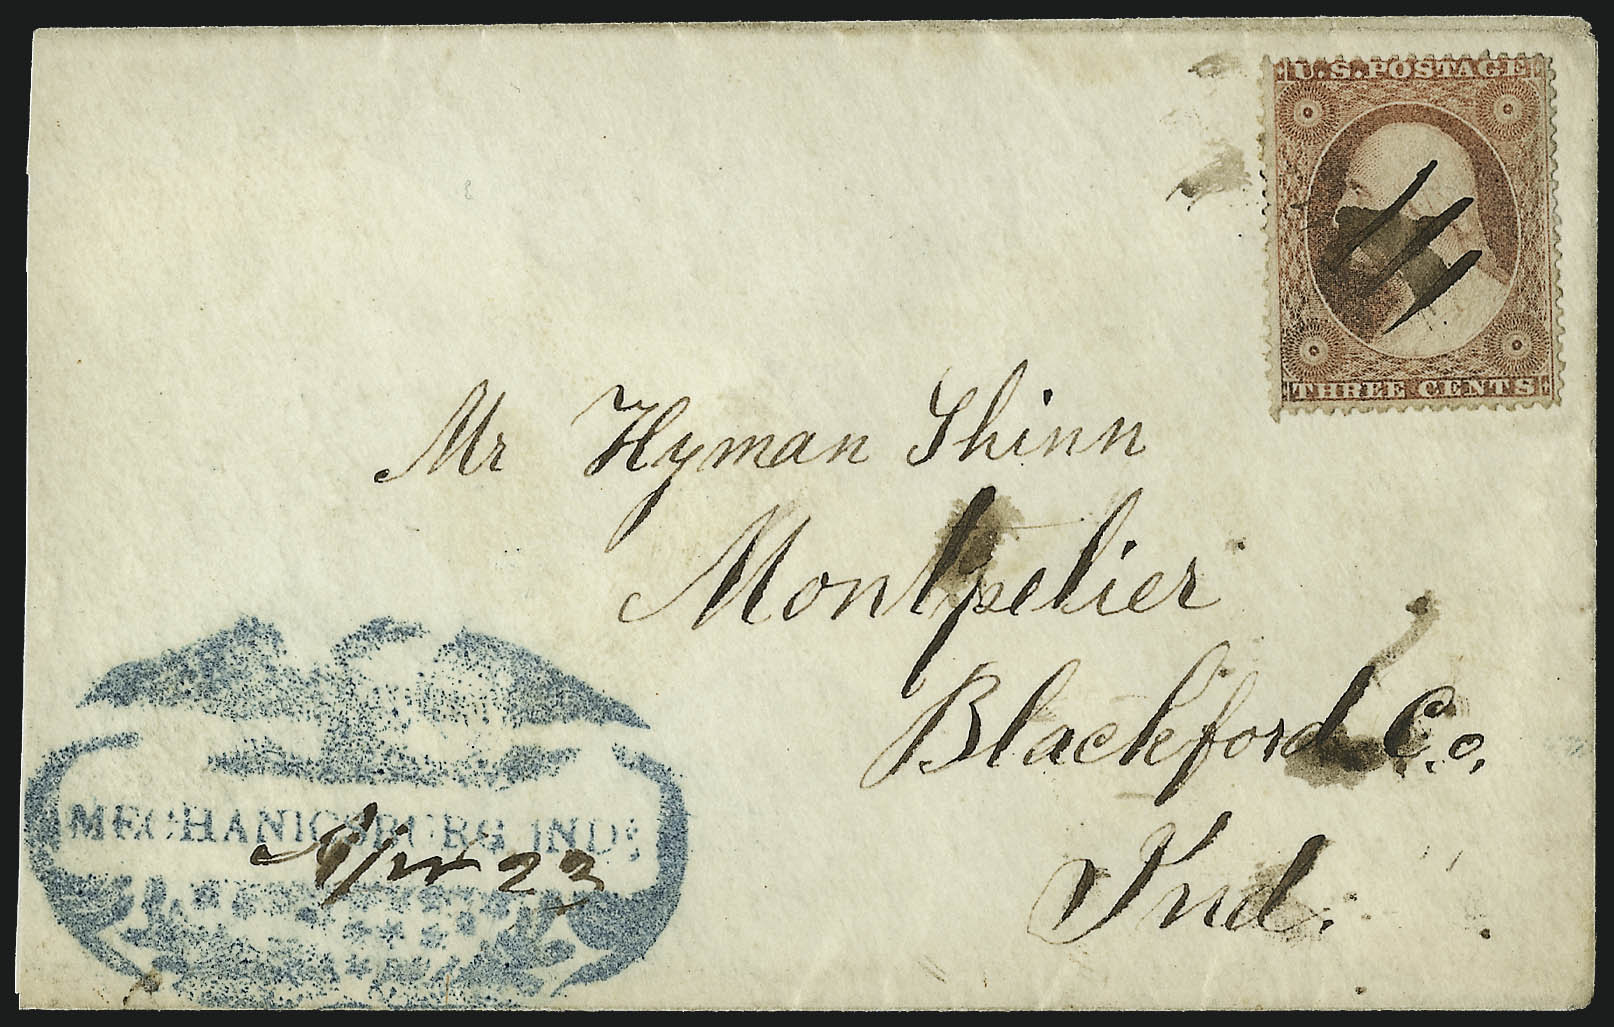 U.S. POSTAGE
THREE CENTS
Mr Hyman Shinn
Montpelier
Blackford Co.
Ind.
MECHANICSBURG IND;
Apr 23